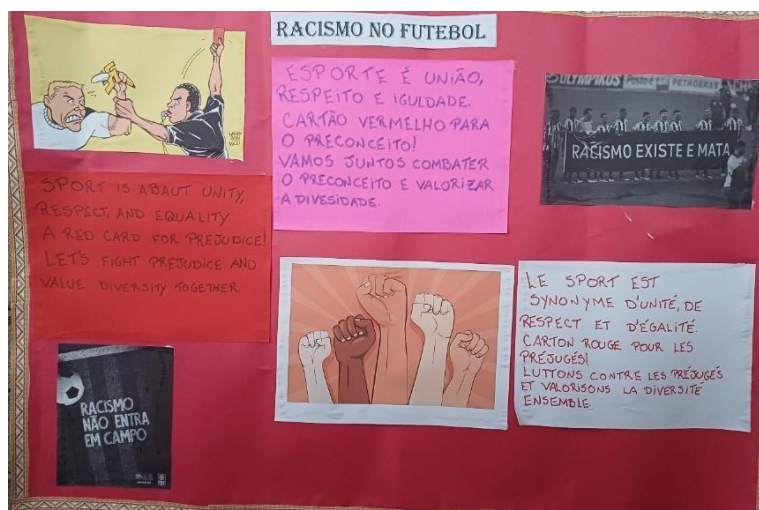 RACISMO NO FUTEBOL
ESPORTE É UNIÃO,
RESPEITO E IGULDADE.
CARTÃO VERMELHO PARA
O PRECONCEITO!
VAMOS JUNTOS COMBATER
O PRECONCEITO E VALORIZAR
A DIVESIDADE.
OLYMPIKUS
PETROBRAS
RACISMO EXISTE E MATA
SPORT IS ABAUT UNITY,
RESPECT, AND EQUALITY
A RED CARD FOR PREJUDICE!
LET'S FIGHT PREJUDICE AND
VALUE DIVERSITY TOGETHER.
LE SPORT EST
SYNONYME D'UNITÉ, DE
RESPECT ET D'ÉGALITÉ.
CARTON ROUGE POUR LES
PRÉJUGÉS!
LUTTONS CONTRE LES PRÉJUGÉS
ET VALORISONS LA DIVERSITÉ
ENSEMBLE.
RACISMO
NÃO ENTRA
EM CAMPO